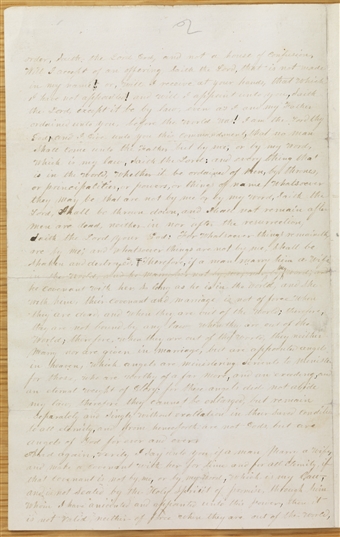 2
order, Saith the Lord God, and not a house of Confusion.
Will I accept of an offering Saith the Lord, that is not made
in my name! or, will I receive at your hands, that which
I have not appointed! and will I appoint unto you, Saith
the Lord, except it be by law, even as I and my Father
ordained unto you, before the world was! I am the Lord thy
God, and I give unto you this commandment, that no man
Shall come unto the Father, but by me, or by my word,
which is my law, Saith the Lord; and every thing that
is in the world, whether it be ordained of men, by thrones,
or principalities, or powers, or things of name, Whatsoever
they may be that are not by me, or by my word, Saith the
Lord, Shall be thrown down, and Shall not remain after
men are dead, neither in nor after the resurrection,
Saith the Lord your God: For whatsoever things remaineth,
are by me; and whatsoever things are not by me, Shall be
Shaken and destroyed. Therefore, if a man marry him a Wife
in the World, and he marry her not by me, nor by my word; and
he covenant with her so long as he is in the world, and she
with him, their covenant and marriage is not of force when
they are dead and when they are out of the world; therefore,
they are not bound by any law when they are out of the
World; therefore, when they are out of the world, they neither
Marry nor are given in marriage, but are appointed angels
in heaven, Which angels are ministering Servants, to minister
for those who are worthy of a far more, and an exceeding, and
an eternal weight of Glory; for these angels did not abide
my law, therefore they cannot be enlarged, but remain
Separately and Singly without exaltation in their Saved condition
to all eternity, and from henceforth are not Gods, but are
angels of God forever and ever.
And again, verily I Say unto you, if a man Marry a Wife,
and make a covenant with her for time and for all Eternity, if
that covenant is not by me, or by my word, which is my law,
and is not Sealed by the Holy Spirit of promise, through him
Whom I have anointed and appointed unto this power, then it
is not valid neither of force when they are out of the world,